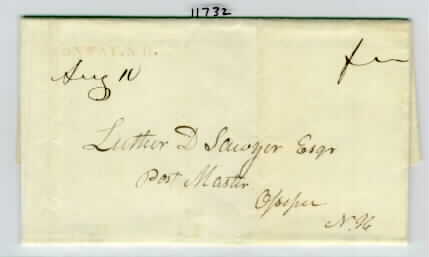 11732
CONWAY. N. H.
Aug 10
free
Luther D Sawyer Esqr
Post Master
Ossipee
N. H.